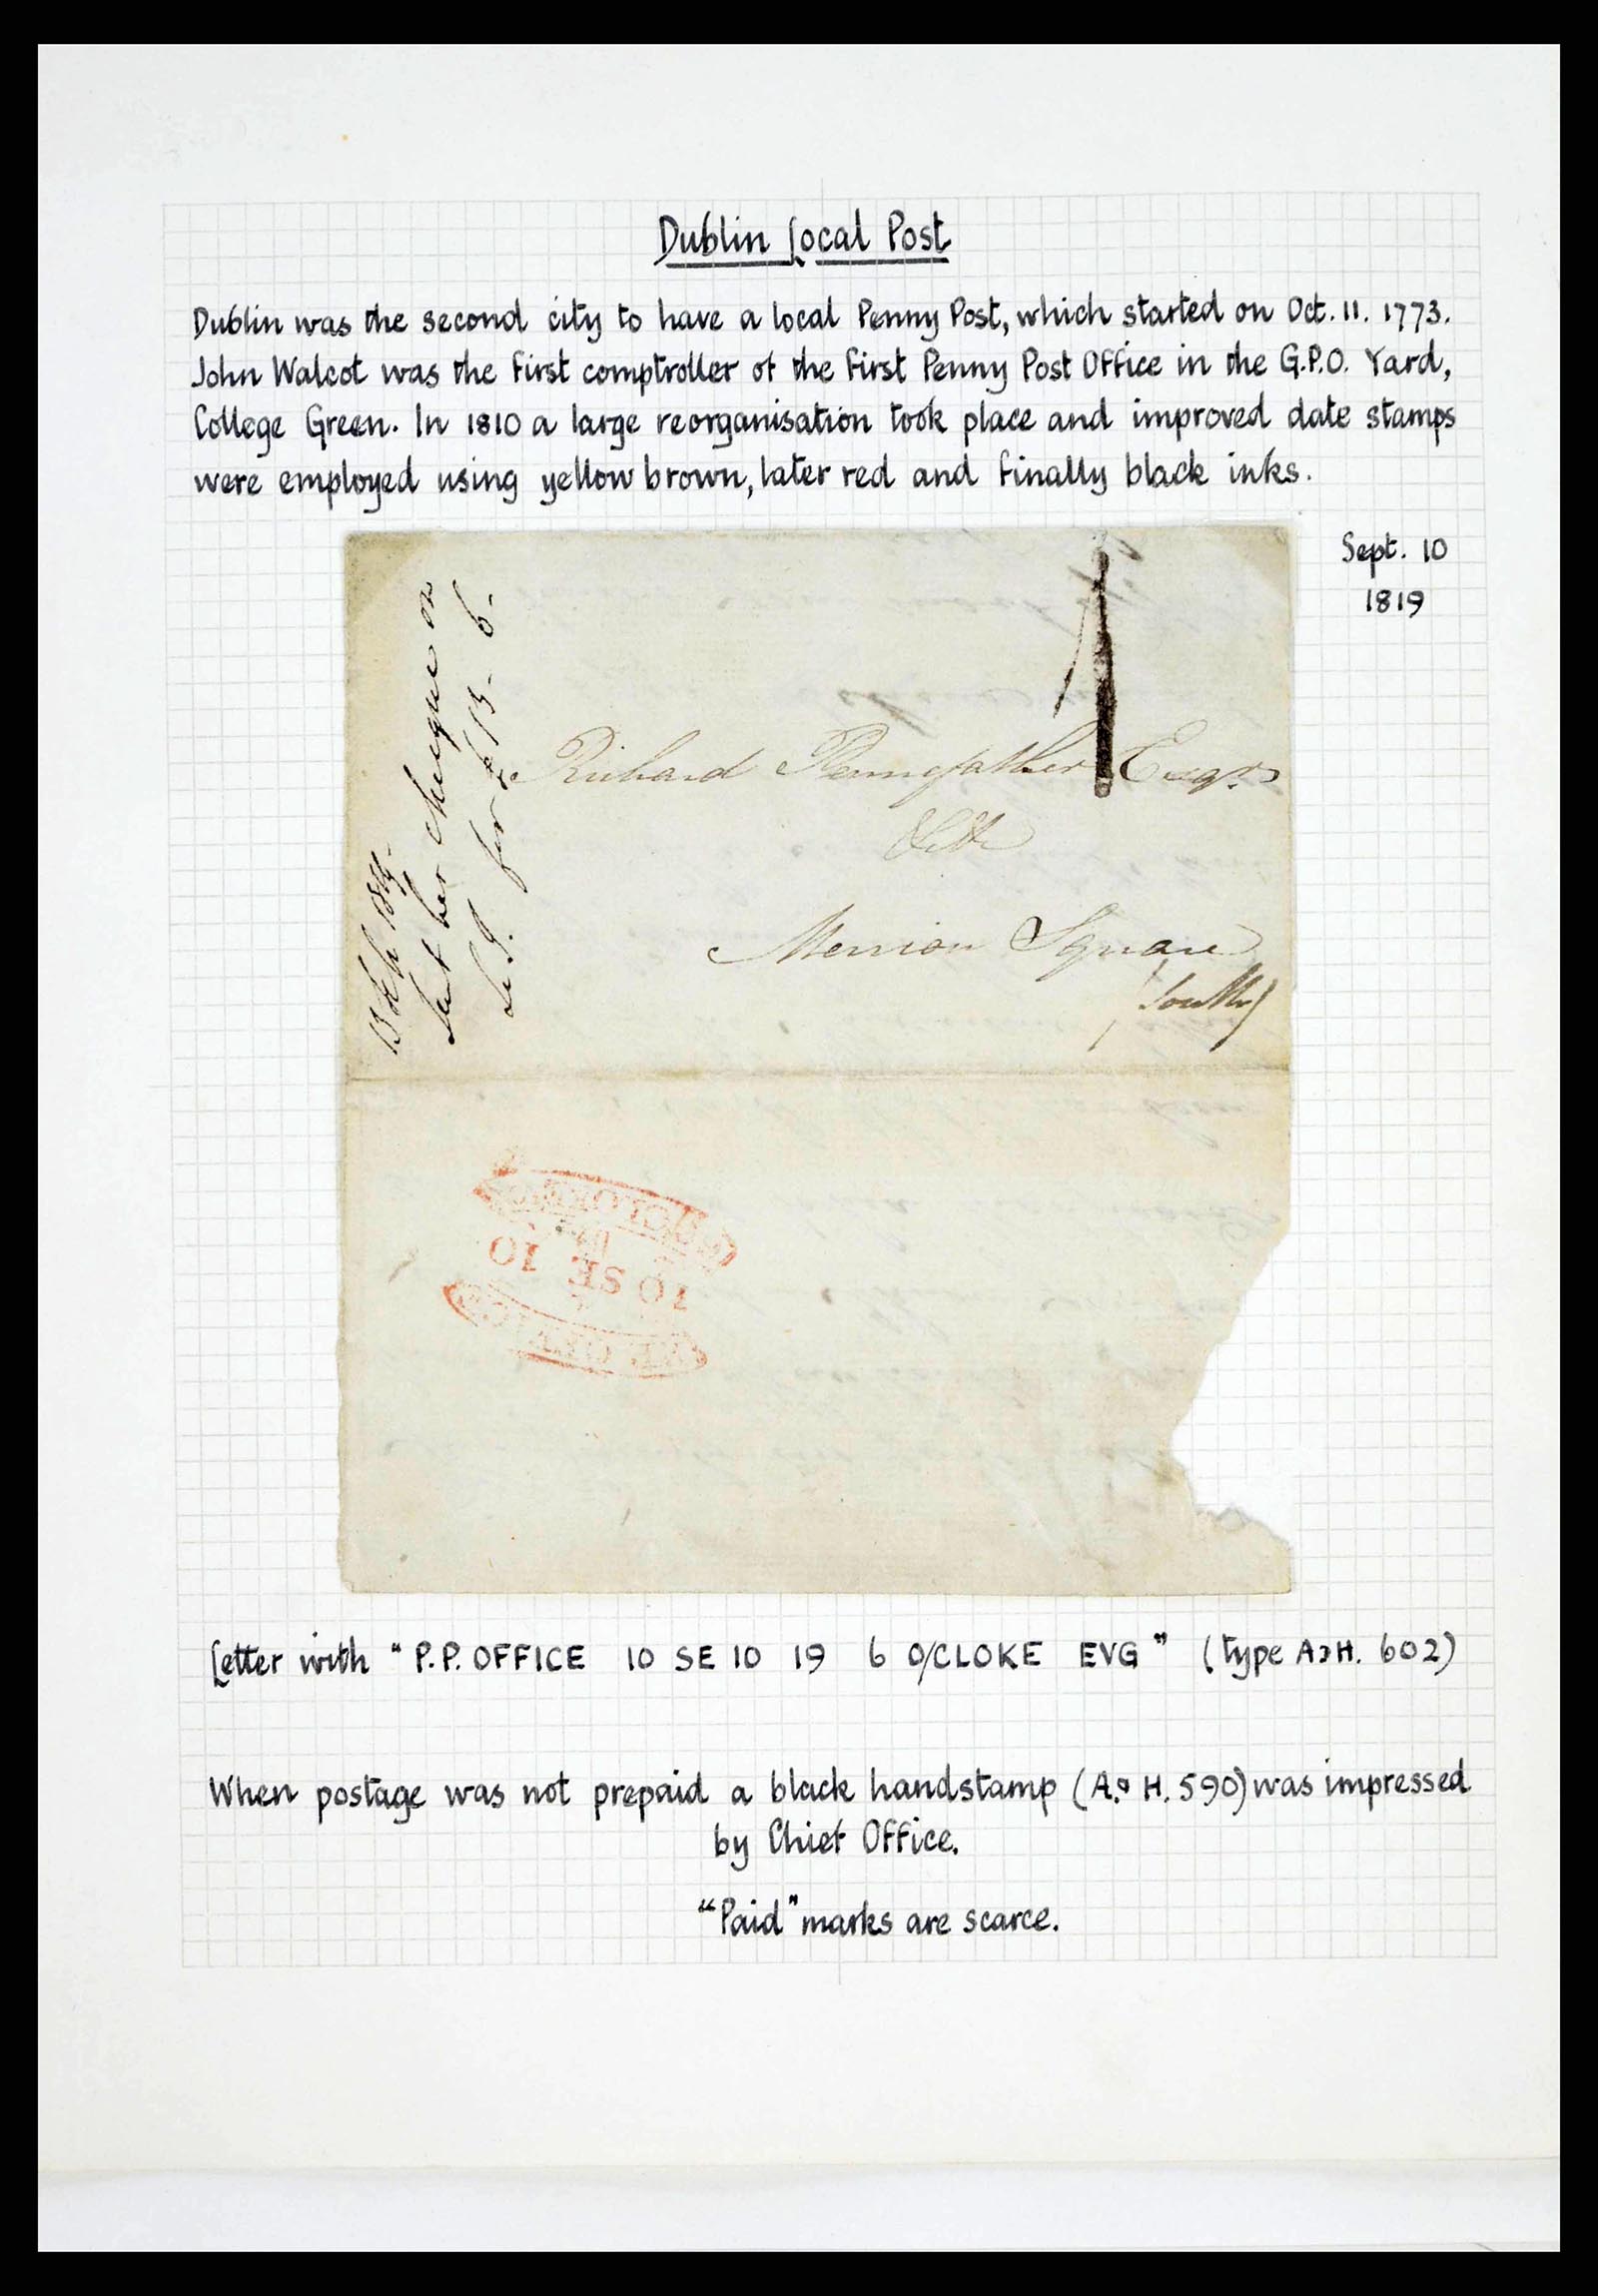 Dublin Local Post
Dublin was the second city to have a local Penny Post, which started on Oct. 11. 1773.
John Walcot was the first comptroller of the first Penny Post Office in the G.P.O. Yard,
College Green. In 1810 a large reorganisation took place and improved date stamps
were employed using yellow brown, later red and finally black inks.
Sept. 10
1819
Sent her cheque on
for £13- 6-
Richard Pennefather Esqr.
Merrion Square
South)
10 SE 10
Letter with "P.P. OFFICE 10 SE 10 19 6 O/CLOKE EVG" (type A&H. 602)
When postage was not prepaid a black handstamp (A.& H. 590) was impressed
by Chief Office.
"Paid" marks are scarce.